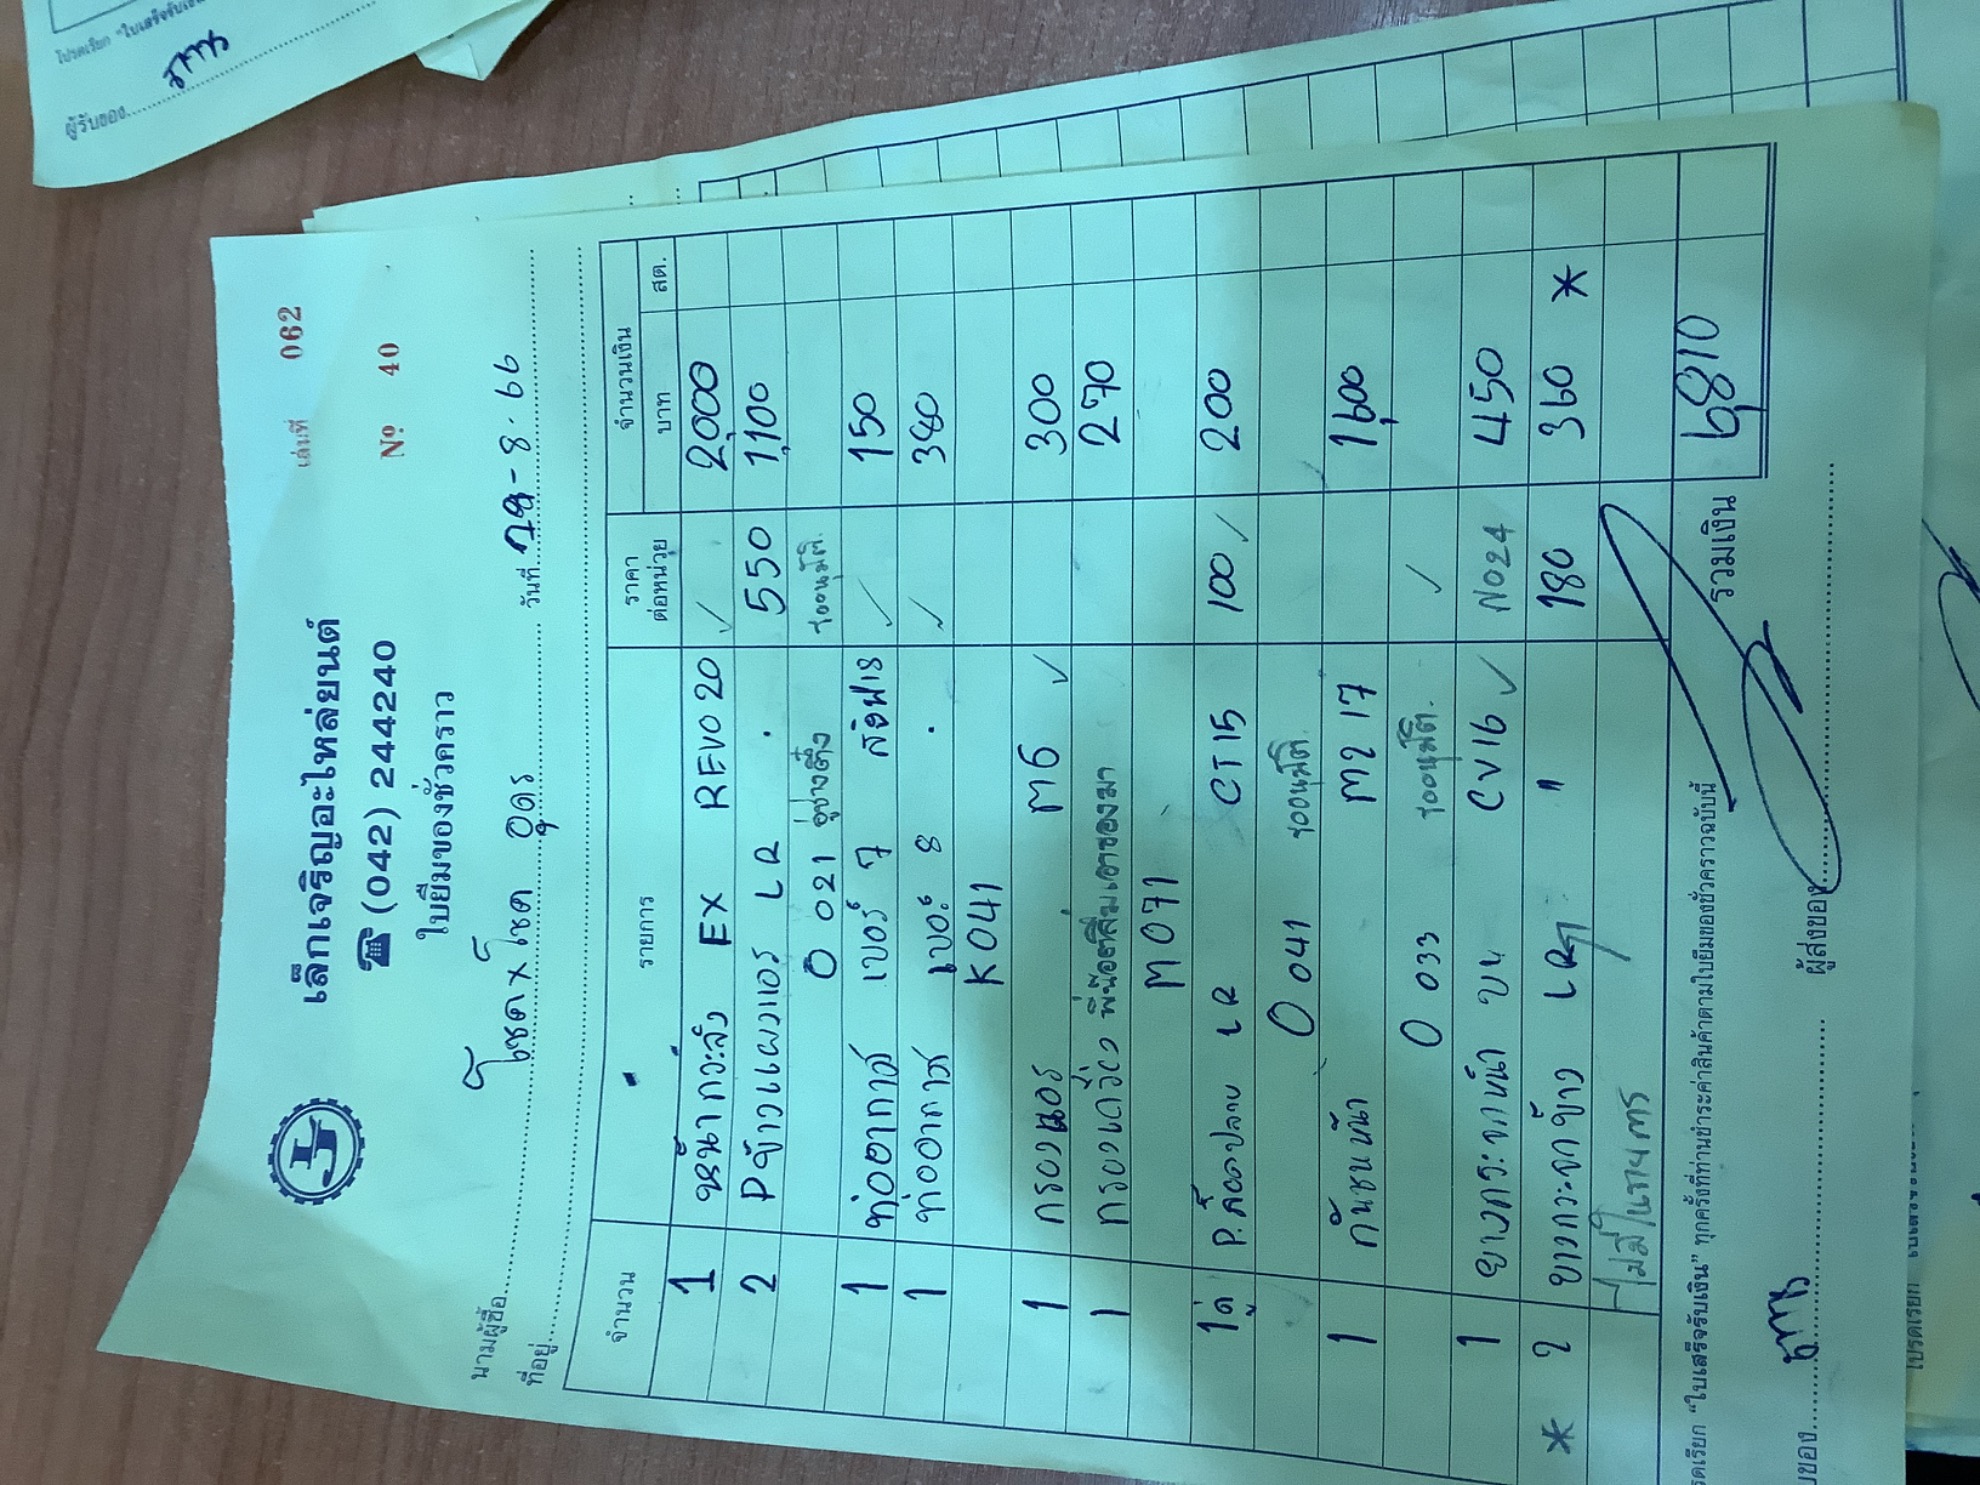 เล่มที่ 062
เล็กเจริญอะไหล่ยนต์
☎ (042) 244240
Nº 40
ใบยืมของชั่วคราว
นามผู้ซื้อ โชค x โชค อุดร วันที่ 29-8-66
ที่อยู่
จำนวน รายการ ราคาต่อหน่วย จำนวนเงิน
บาท สต.
1 หน้ากระจัง EX REVO 20 ✓ 2,000
2 Pข้างแผงแอร์ LR . 550 1,100
O 021 อู่ช่างติ๋ง รออนุมัติ.
1 ท่ออากาศ เบอร์ 7 ✓ 150
1 ท่ออากาศ เบอร์ 8 . ✓ 380
K 041
1 กรองแอร์ M6 ✓ 300
1 กรองเครื่อง 270
M 071
1คู่ P. LR CT15 100 ✓ 200
O 041 รออนุมัติ.
1 กันชนหน้า M2 17 1,600
O 033 รออนุมัติ. ✓
1 ยางกระจกหน้า บน CV16 ✓ No24 450
* 2 ยางกระจกข้าง LR " 180 360 *
ไม่มีในรายการ
รวมเงิน 6,810
โปรดเรียก “ใบเสร็จรับเงิน” ทุกครั้งที่ท่านชำระค่าสินค้าตามใบยืมของชั่วคราวฉบับนี้
ผู้ส่งของ
โปรดเรียก "ใบเสร็จรับเงิน
ผู้รับของ
โปรดเรียก